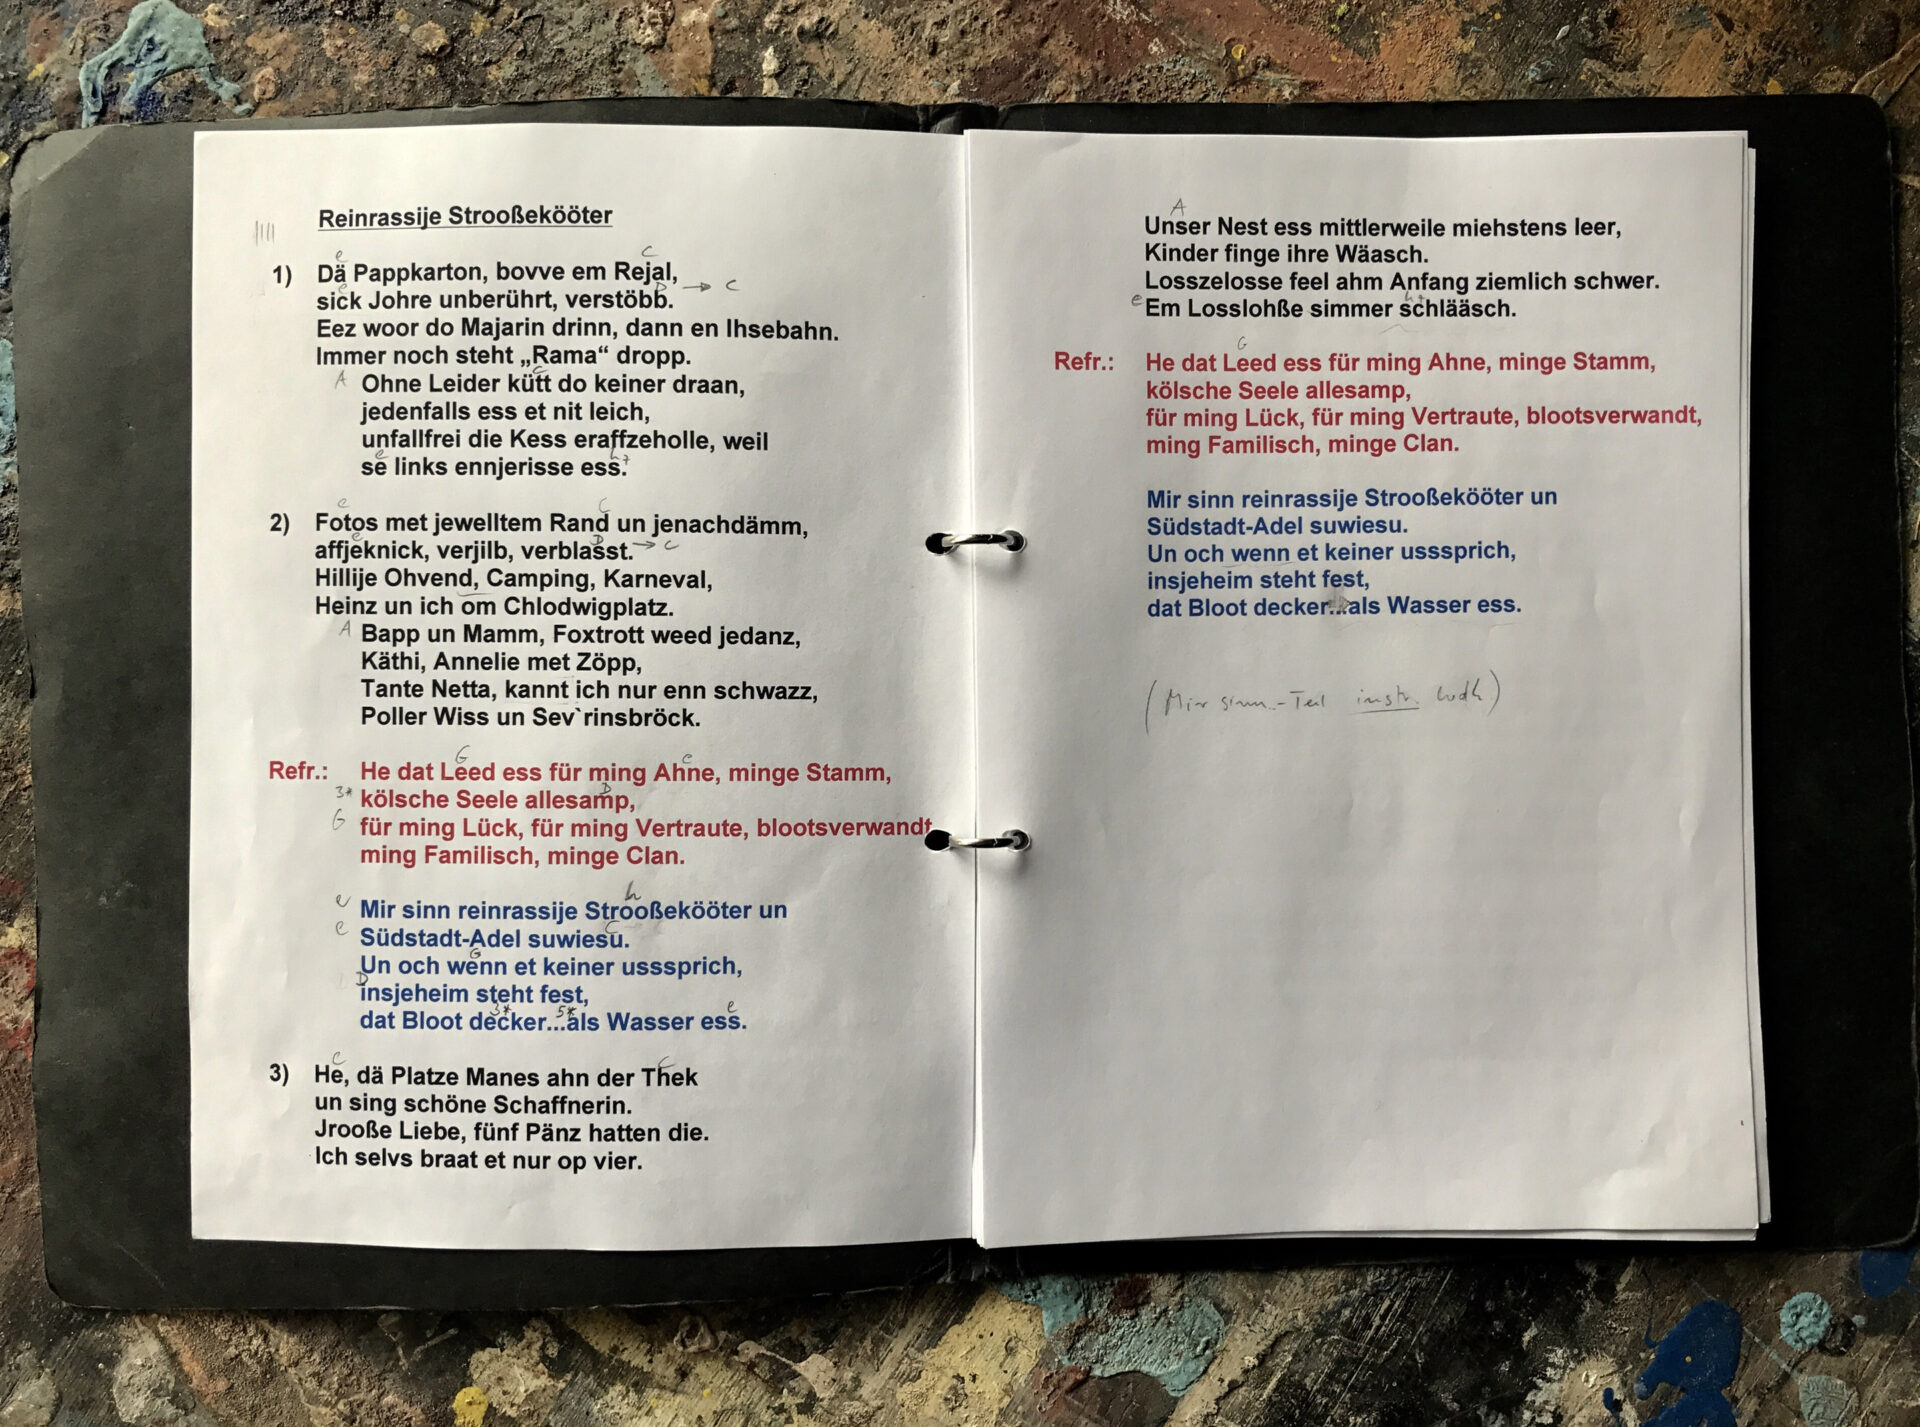 Reinrassije Strooßekööter
1) Dä Pappkarton, bovve em Rejal,
sick Johre unberührt, verstöbb. → C
Eez woor do Majarin drinn, dann en Ihsebahn.
Immer noch steht „Rama“ dropp.
A Ohne Leider kütt do keiner draan,
jedenfalls ess et nit leich,
unfallfrei die Kess eraffzeholle, weil
se links ennjerisse ess.
2) Fotos met jewelltem Rand un jenachdämm,
affjeknick, verjilb, verblasst. → C
Hillije Ohvend, Camping, Karneval,
Heinz un ich om Chlodwigplatz.
A Bapp un Mamm, Foxtrott weed jedanz,
Käthi, Annelie met Zöpp,
Tante Netta, kannt ich nur enn schwazz,
Poller Wiss un Sev`rinsbröck.
G
Refr.: He dat Leed ess für ming Ahne, minge Stamm,
3* kölsche Seele allesamp,
G für ming Lück, für ming Vertraute, blootsverwandt
ming Familisch, minge Clan.
h
e Mir sinn reinrassije Strooßekööter un
e Südstadt-Adel suwiesu.
G
Un och wenn et keiner usssprich,
D
insjeheim steht fest,
3* 5* e
dat Bloot decker...als Wasser ess.
3) He, dä Platze Manes ahn der Thek
un sing schöne Schaffnerin.
Jrooße Liebe, fünf Pänz hatten die.
Ich selvs braat et nur op vier.
A
Unser Nest ess mittlerweile miehstens leer,
Kinder finge ihre Wäasch.
Losszelosse feel ahm Anfang ziemlich schwer.
e Em Losslohße simmer schlääsch.
G
Refr.: He dat Leed ess für ming Ahne, minge Stamm,
kölsche Seele allesamp,
für ming Lück, für ming Vertraute, blootsverwandt,
ming Familisch, minge Clan.
Mir sinn reinrassije Strooßekööter un
Südstadt-Adel suwiesu.
Un och wenn et keiner usssprich,
insjeheim steht fest,
dat Bloot decker...als Wasser ess.
(Mir sinn-Teil instr.